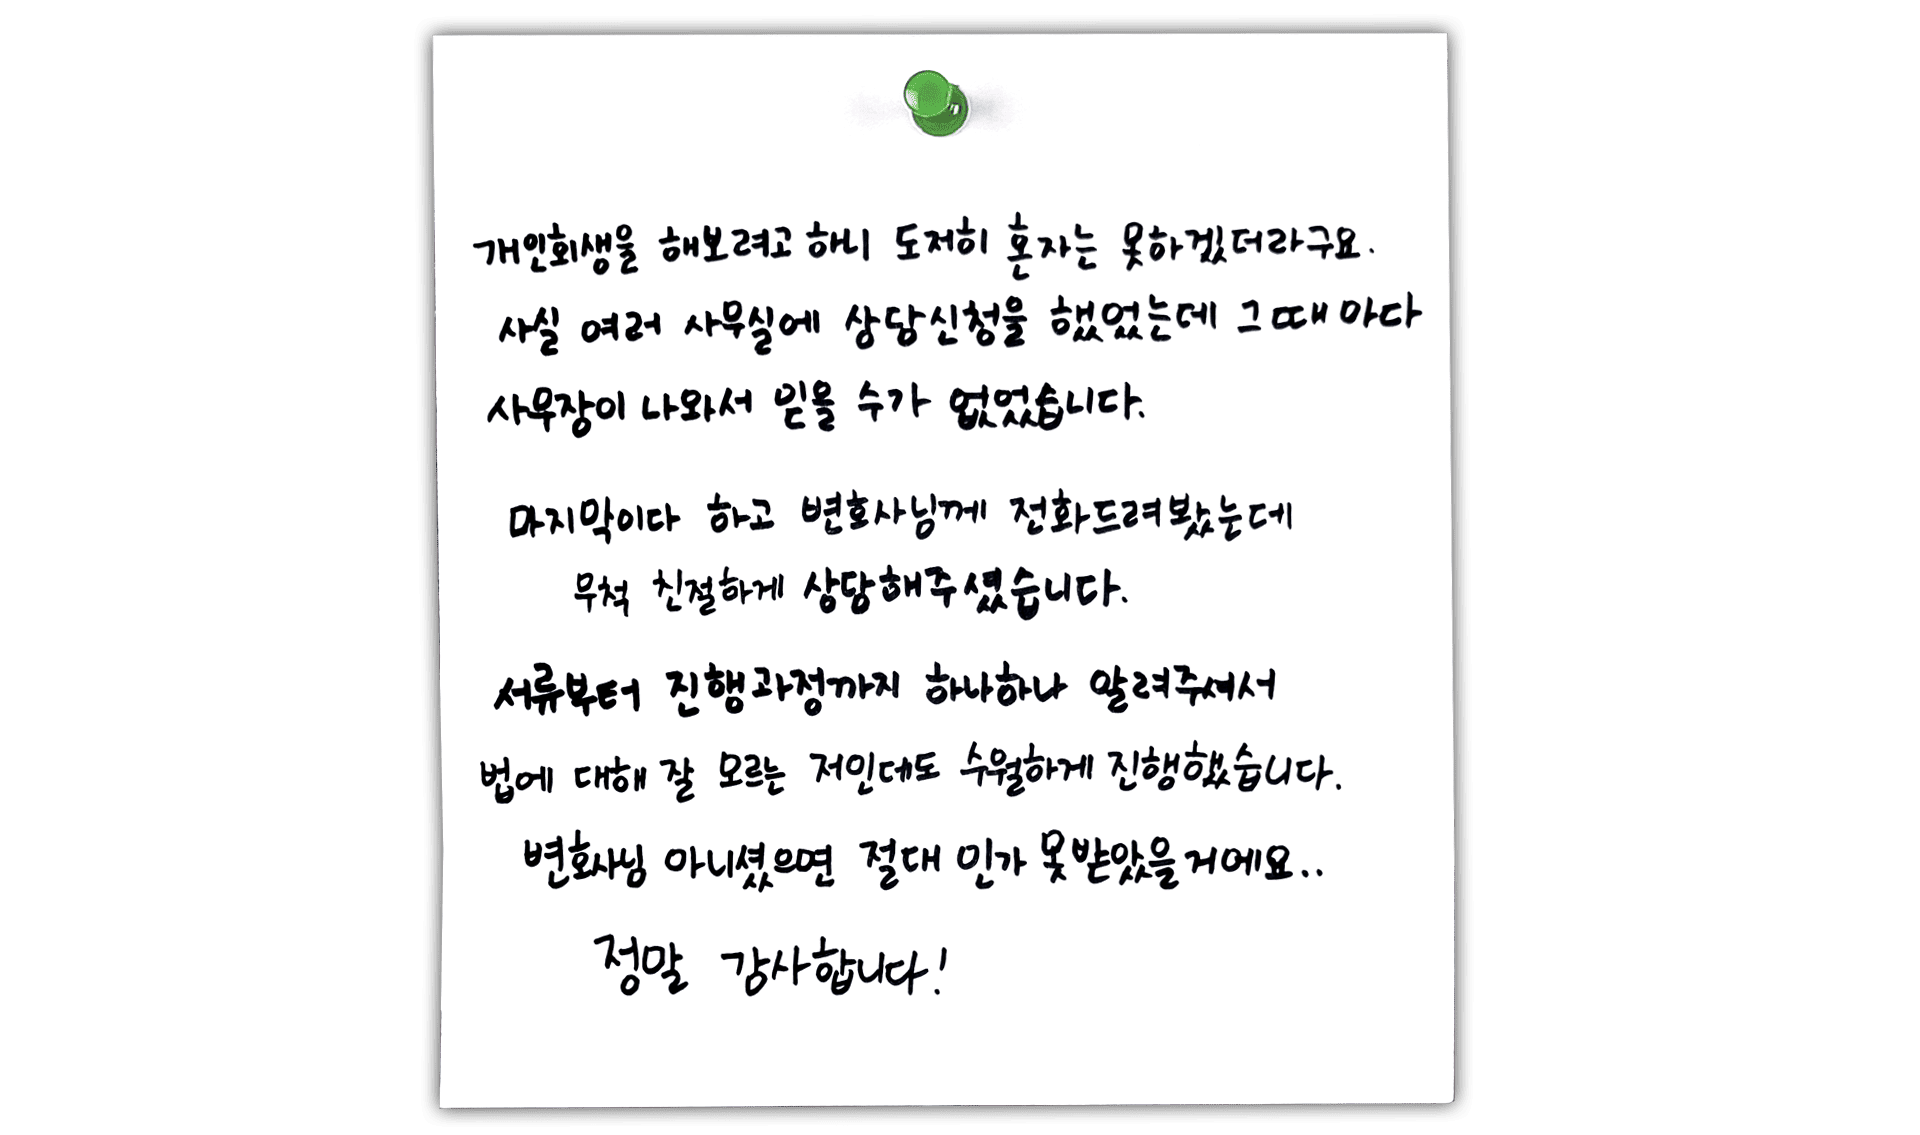 개인회생을 해보려고 하니 도저히 혼자는 못하겠더라구요.
사실 여러 사무실에 상담신청을 했었는데 그때마다
사무장이 나와서 믿을 수가 없었습니다.
마지막이다 하고 변호사님께 전화드려봤는데
무척 친절하게 상담해주셨습니다.
서류부터 진행과정까지 하나하나 알려주셔서
법에 대해 잘 모르는 저인데도 수월하게 진행했습니다.
변호사님 아니셨으면 절대 인가 못받았을거에요..
정말 감사합니다!